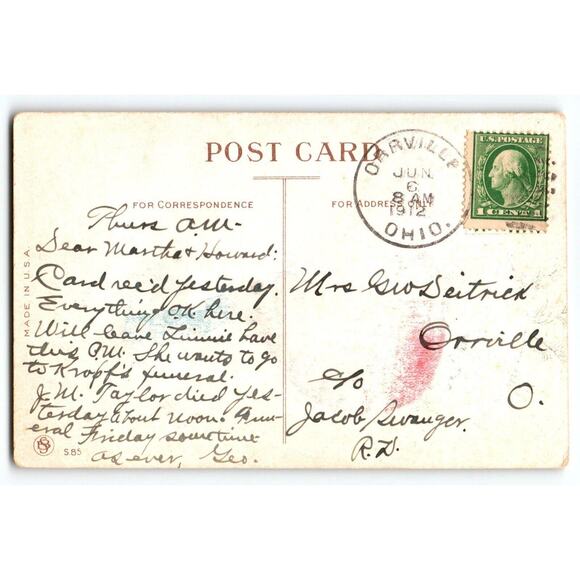 POST CARD
ORRVILLE
JUN
6
8 AM
1912
OHIO.
U.S. POSTAGE
1 CENT 1
FOR CORRESPONDENCE
FOR ADDRESS ONLY
MADE IN U.S.A.
Thurs AM-
Dear Martha & Howard:
Card rec'd yesterday.
Everything O.K. here.
Will leave Linnie have
this P.M. She wants to go
to Kropf's funeral.
J.M. Taylor died yes-
terday about noon. Fun-
eral Friday sometime
as ever, Geo.
Mrs GW Deitrick
Orrville
O.
c/o
Jacob Swanger.
R.D.
S 85